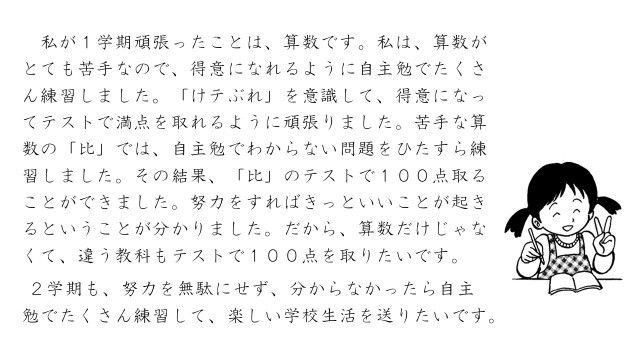 私が１学期頑張ったことは、算数です。私は、算数が
とても苦手なので、得意になれるように自主勉でたくさ
ん練習しました。「けテぶれ」を意識して、得意になっ
てテストで満点を取れるように頑張りました。苦手な算
数の「比」では、自主勉でわからない問題をひたすら練
習しました。その結果、「比」のテストで１００点取る
ことができました。努力をすればきっといいことが起き
るということが分かりました。だから、算数だけじゃな
くて、違う教科もテストで１００点を取りたいです。
　２学期も、努力を無駄にせず、分からなかったら自主
勉でたくさん練習して、楽しい学校生活を送りたいです。